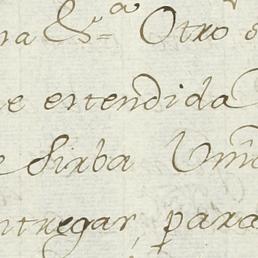 ra &ª Otro s
e estendida
e sirba Vm
ntregar, para